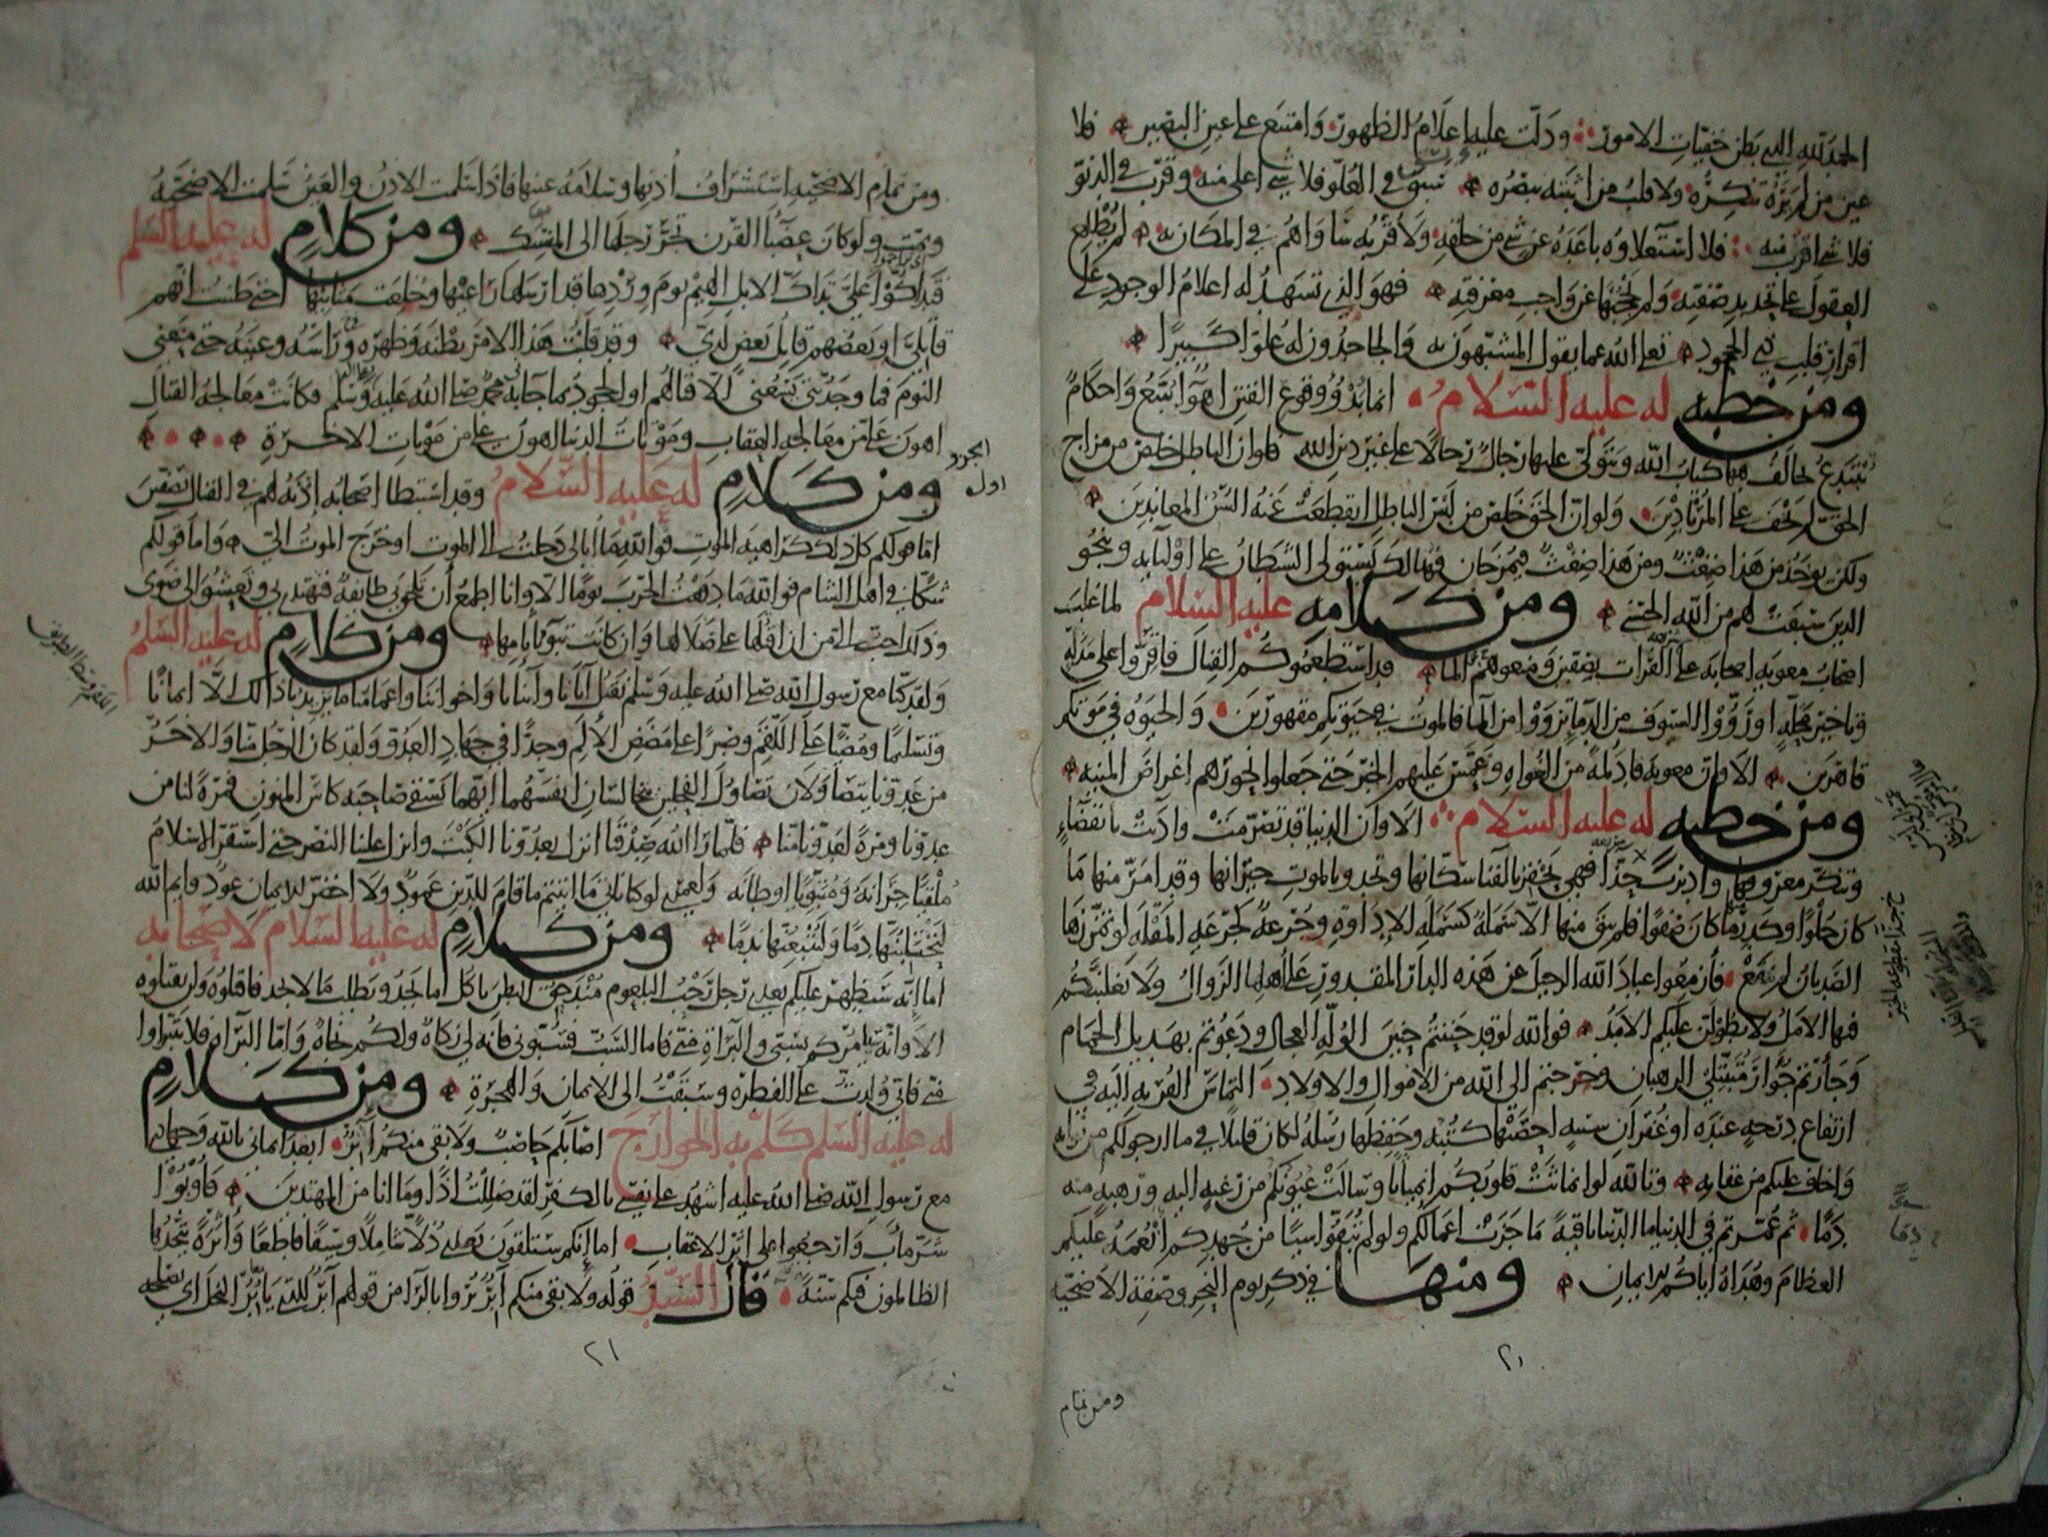 الحمد لله الذي بطن خفيات الامور ودلت عليه اعلام الظهور وامتنع على عين البصير فلا
عين من لم يره تنكره ولا قلب من اثبته يبصره سبق في العلو فلا شي اعلى منه وقرب في الدنو
فلا شي اقرب منه فلا استعلاوه باعده عن شي من خلقه ولا قربه ساواهم في المكان به لم يطلع
العقول على تحديد صفته ولم يحجبها عن واجب معرفته فهو الذي تشهد له اعلام الوجود على
اقرار قلب ذي الجحود تعالى الله عما يقول المشبهون به والجاحدون له علوا كبيرا
ومن خطبه له عليه السلام انما بدؤ وقوع الفتن اهوآ تتبع واحكام
تبتدع يخالف فيها كتاب الله ويتولى عليها رجال رجالا على غير دين الله فلو ان الباطل خلص من مزاج
الحق لم يخف على المرتادين ولو ان الحق خلص من لبس الباطل انقطعت عنه السن المعاندين
ولكن يوخذ من هذا ضغث ومن هذا ضغث فيمزجان فهنالك يستولي الشيطان على اوليايه وينجو
الذين سبقت لهم من الله الحسنى ومن كلامه عليه السلام لما غلب
اصحاب معويه اصحابه على الفرات بصفين ومنعوهم الما قد استطعموكم القتال فاقروا على مذله
وتاخير محله او رووا السيوف من الدما ترووا من الما فالموت في حيوتكم مقهورين والحيوه في موتكم
قاهرين الا وان معويه قاد لمة من الغواه وعمس عليهم الخبر حتى جعلوا نحورهم اغراض المنيه
ومن خطبه له عليه السلام الا وان الدنيا قد تصرمت واذنت بانقضآء
وتنكر معروفها وادبرت حذآ فهي تحفز بالفنا سكانها وتحدو بالموت جيرانها وقد امر منها ما
كان حلوا وكدر منها ما كان صفوا فلم يبق منها الا سملة كسملة الاداوه وجرعة كجرعه المقله لو تمززها
الصديان لم ينقع فازمعوا عباد الله الرحيل عن هذه الدار المقدور على اهلها الزوال ولا يغلبنكم
فيها الامل ولا يطولن عليكم الامد فوالله لو قد حننتم حنين الوله العجال ودعوتم بهديل الحمام
وجأرتم جؤار متبتلي الرهبان وخرجتم الى الله من الاموال والاولاد التماس القربه اليه في
ارتفاع درجه عنده او غفران سيئه احصتها كتبه وحفظها رسله لكان قليلا في ما ارجو لكم من ثوابه
واخاف عليكم من عقابه وتالله لو انماثت قلوبكم انمياثا وسالت عيونكم من رغبه اليه ورهبه منه
دما ثم عمرتم في الدنيا ما الدنيا باقية ما جزت اعمالكم ولو لم تبقوا شيا من جهدكم انعمه عليكم
العظام وهداه اياكم للايمان ومنها في ذكر يوم النحر وصفة الاضحيه
٢٠
ومن تمام
ومن تمام الاضحيه استشراف اذنها وسلامه عينها فاذا سلمت الاذن والعين سلمت الاضحيه
وتمت ولو كانت عضبا القرن تجر رجلها الى المنسك ومن كلام له عليه السلم
فتداكوا علي تداك الابل الهيم يوم وردها قد ارسلها راعيها وخلعت مثانيها حتى ظننت انهم
قاتلي او بعضهم قاتل بعض لدي وقد قلبت هذا الامر بطنه وظهره وراسه وعينه حتى منعني
النوم فما وجدتني يسعني الا قتالهم او الجحود بما جا به محمد صلى الله عليه وسلم فكانت معالجه القتال
اهون علي من معالجه العقاب وموتات الدنيا اهون علي من موتات الاخرة
ومن كلام له عليه السلام وقد استبطا اصحابه اذنه لهم في القتال بصفين
اما قولكم كل ذلك كراهيه الموت فوالله ما ابالي دخلت الى الموت او خرج الموت الي واما قولكم
شكا في اهل الشام فوالله ما دفعت الحرب يوما الا وانا اطمع ان تلحق بي طايفة فتهتدي بي وتعشو الى ضوى
وذلك احب الي من ان اقتلها على ضلالها وان كانت تبوء باثامها ومن كلام له عليه السلم
ولقد كنا مع رسول الله صلى الله عليه وسلم نقتل آبانا وابنانا واخواننا واعمامنا ما يزيدنا ذلك الا ايمانا
وتسليما ومضيا على اللقم وصبرا على مضض الالم وجدا في جهاد العدو ولقد كان الرجل منا والاخر
من عدونا يتصاولان تصاول الفحلين يتخالسان انفسهما ايهما يسقي صاحبه كاس المنون فمرة لنا من
عدونا ومرة لعدونا منا فلما راى الله صدقنا انزل بعدونا الكبت وانزل علينا النصر حتى استقر الاسلام
ملقيا جرانه ومتبويا اوطانه ولعمري لو كنا ناتي ما اتيتم ما قام للدين عمود ولا اخضر للايمان عود وايم الله
لتحتلبنها دما ولتتبعنها ندما ومن كلام له عليه السلام لاصحابه
اما انه سيظهر عليكم بعدي رجل رحب البلعوم مندحق البطن ياكل ما يجد ويطلب ما لا يجد فاقتلوه ولن تقتلوه
الا وانه سيامركم بسبي والبراة مني فاما السب فسبوني فانه لي زكاة ولكم نجاة واما البراه فلا تتبراوا
مني فاني ولدت على الفطره وسبقت الى الايمان والهجرة ومن كلام
له عليه السلم كلم به الخوارج اصابكم حاصب ولا بقي منكم آبر ابعد ايماني بالله وجهادي
مع رسول الله صلى الله عليه اشهد على نفسي بالكفر لقد ضللت اذا وما انا من المهتدين فاوبوا
شر ماب وارجعوا على اثر الاعقاب اما انكم ستلقون بعدي ذلا شاملا وسيفا قاطعا واثرة يتخذها
الظالمون فيكم سنة قال السيد قوله ولا بقي منكم آبر يروا بالرا من قولهم آبر للذي يابر النخل اي يصلحه
٢١
الجزو
اول